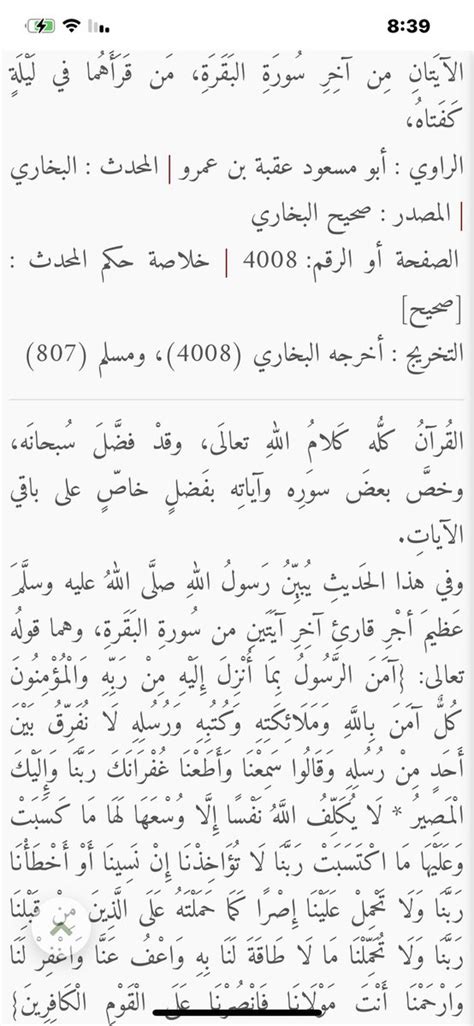 8:39
الآيَتَانِ مِن آخِرِ سُورَةِ البَقَرَةِ، مَن قَرَأَهُما في لَيْلَةٍ
كَفَتاهُ،
الراوي : أبو مسعود عقبة بن عمرو | المحدث : البخاري
| المصدر : صحيح البخاري
الصفحة أو الرقم: 4008 | خلاصة حكم المحدث :
[صحيح]
التخريج : أخرجه البخاري (4008)، ومسلم (807)
القُرآنُ كلُّه كَلامُ اللهِ تعالَى، وقدْ فضَّلَ سُبحانَه،
وخصَّ بعضَ سوَرِه وآياتِه بفَضلٍ خاصٍّ على باقي
الآياتِ.
وفي هذا الحَديثِ يُبيِّنُ رَسولُ اللهِ صلَّى اللهُ عليه وسلَّمَ
عَظيمَ أجْرِ قارئِ آخِرِ آيَتَينِ من سُورةِ البَقَرةِ، وهما قولُه
تعالى: {آمَنَ الرَّسُولُ بِمَا أُنْزِلَ إِلَيْهِ مِنْ رَبِّهِ وَالْمُؤْمِنُونَ
كُلٌّ آمَنَ بِاللَّهِ وَمَلَائِكَتِهِ وَكُتُبِهِ وَرُسُلِهِ لَا نُفَرِّقُ بَيْنَ
أَحَدٍ مِنْ رُسُلِهِ وَقَالُوا سَمِعْنَا وَأَطَعْنَا غُفْرَانَكَ رَبَّنَا وَإِلَيْكَ
الْمَصِيرُ * لَا يُكَلِّفُ اللَّهُ نَفْسًا إِلَّا وُسْعَهَا لَهَا مَا كَسَبَتْ
وَعَلَيْهَا مَا اكْتَسَبَتْ رَبَّنَا لَا تُؤَاخِذْنَا إِنْ نَسِينَا أَوْ أَخْطَأْنَا
رَبَّنَا وَلَا تَحْمِلْ عَلَيْنَا إِصْرًا كَمَا حَمَلْتَهُ عَلَى الَّذِينَ مِنْ قَبْلِنَا
رَبَّنَا وَلَا تُحَمِّلْنَا مَا لَا طَاقَةَ لَنَا بِهِ وَاعْفُ عَنَّا وَاغْفِرْ لَنَا
وَارْحَمْنَا أَنْتَ مَوْلَانَا فَانْصُرْنَا عَلَى الْقَوْمِ الْكَافِرِينَ}